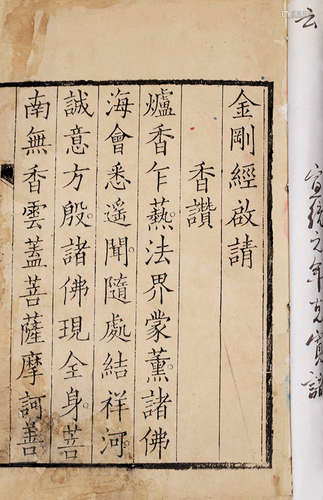 云
宣統元年
金剛經啟請
香讚
爐香乍爇。法界蒙薰。諸佛
海會悉遙聞。隨處結祥河。
誠意方殷。諸佛現全身。菩
南無香雲蓋菩薩摩訶善